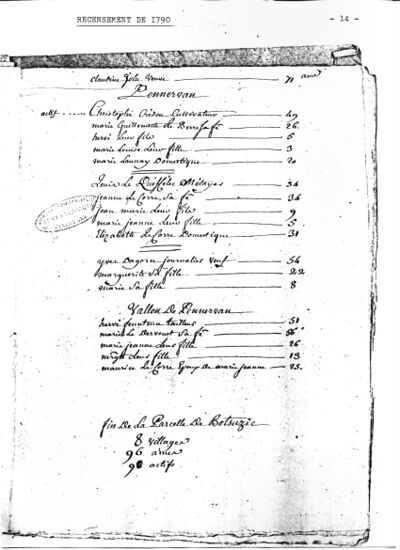 RECENSEMENT DE 1790 - 14 -
claudine Veuve 71 ans
Pennervan
actif ..... Christophe Cultivateur 49
marie Guillemette Le Sa fe 26
hervé leur fils 5
marie Louise leur fille 3
marie Launay Domestique 20
Louis Le Métayer 34
jeanne Le Corre Sa fe 34
jean marie leur fils 9
marie jeanne leur fille 5
Elizabeth Le Corre Domestique 31
yves Dagorn journalier veuf 54
marguerite Sa fille 22
marie Sa fille 8
Vallon De Pennervan
hervé tailleur 51
marie Le Sa fe 56
marie jeanne leur fille 26
leur fille 13
maurice Le Corre Epoux De marie jeanne 25.
fin De La Parcelle De Botsuzic
8 villages
96 ames
90 actifs